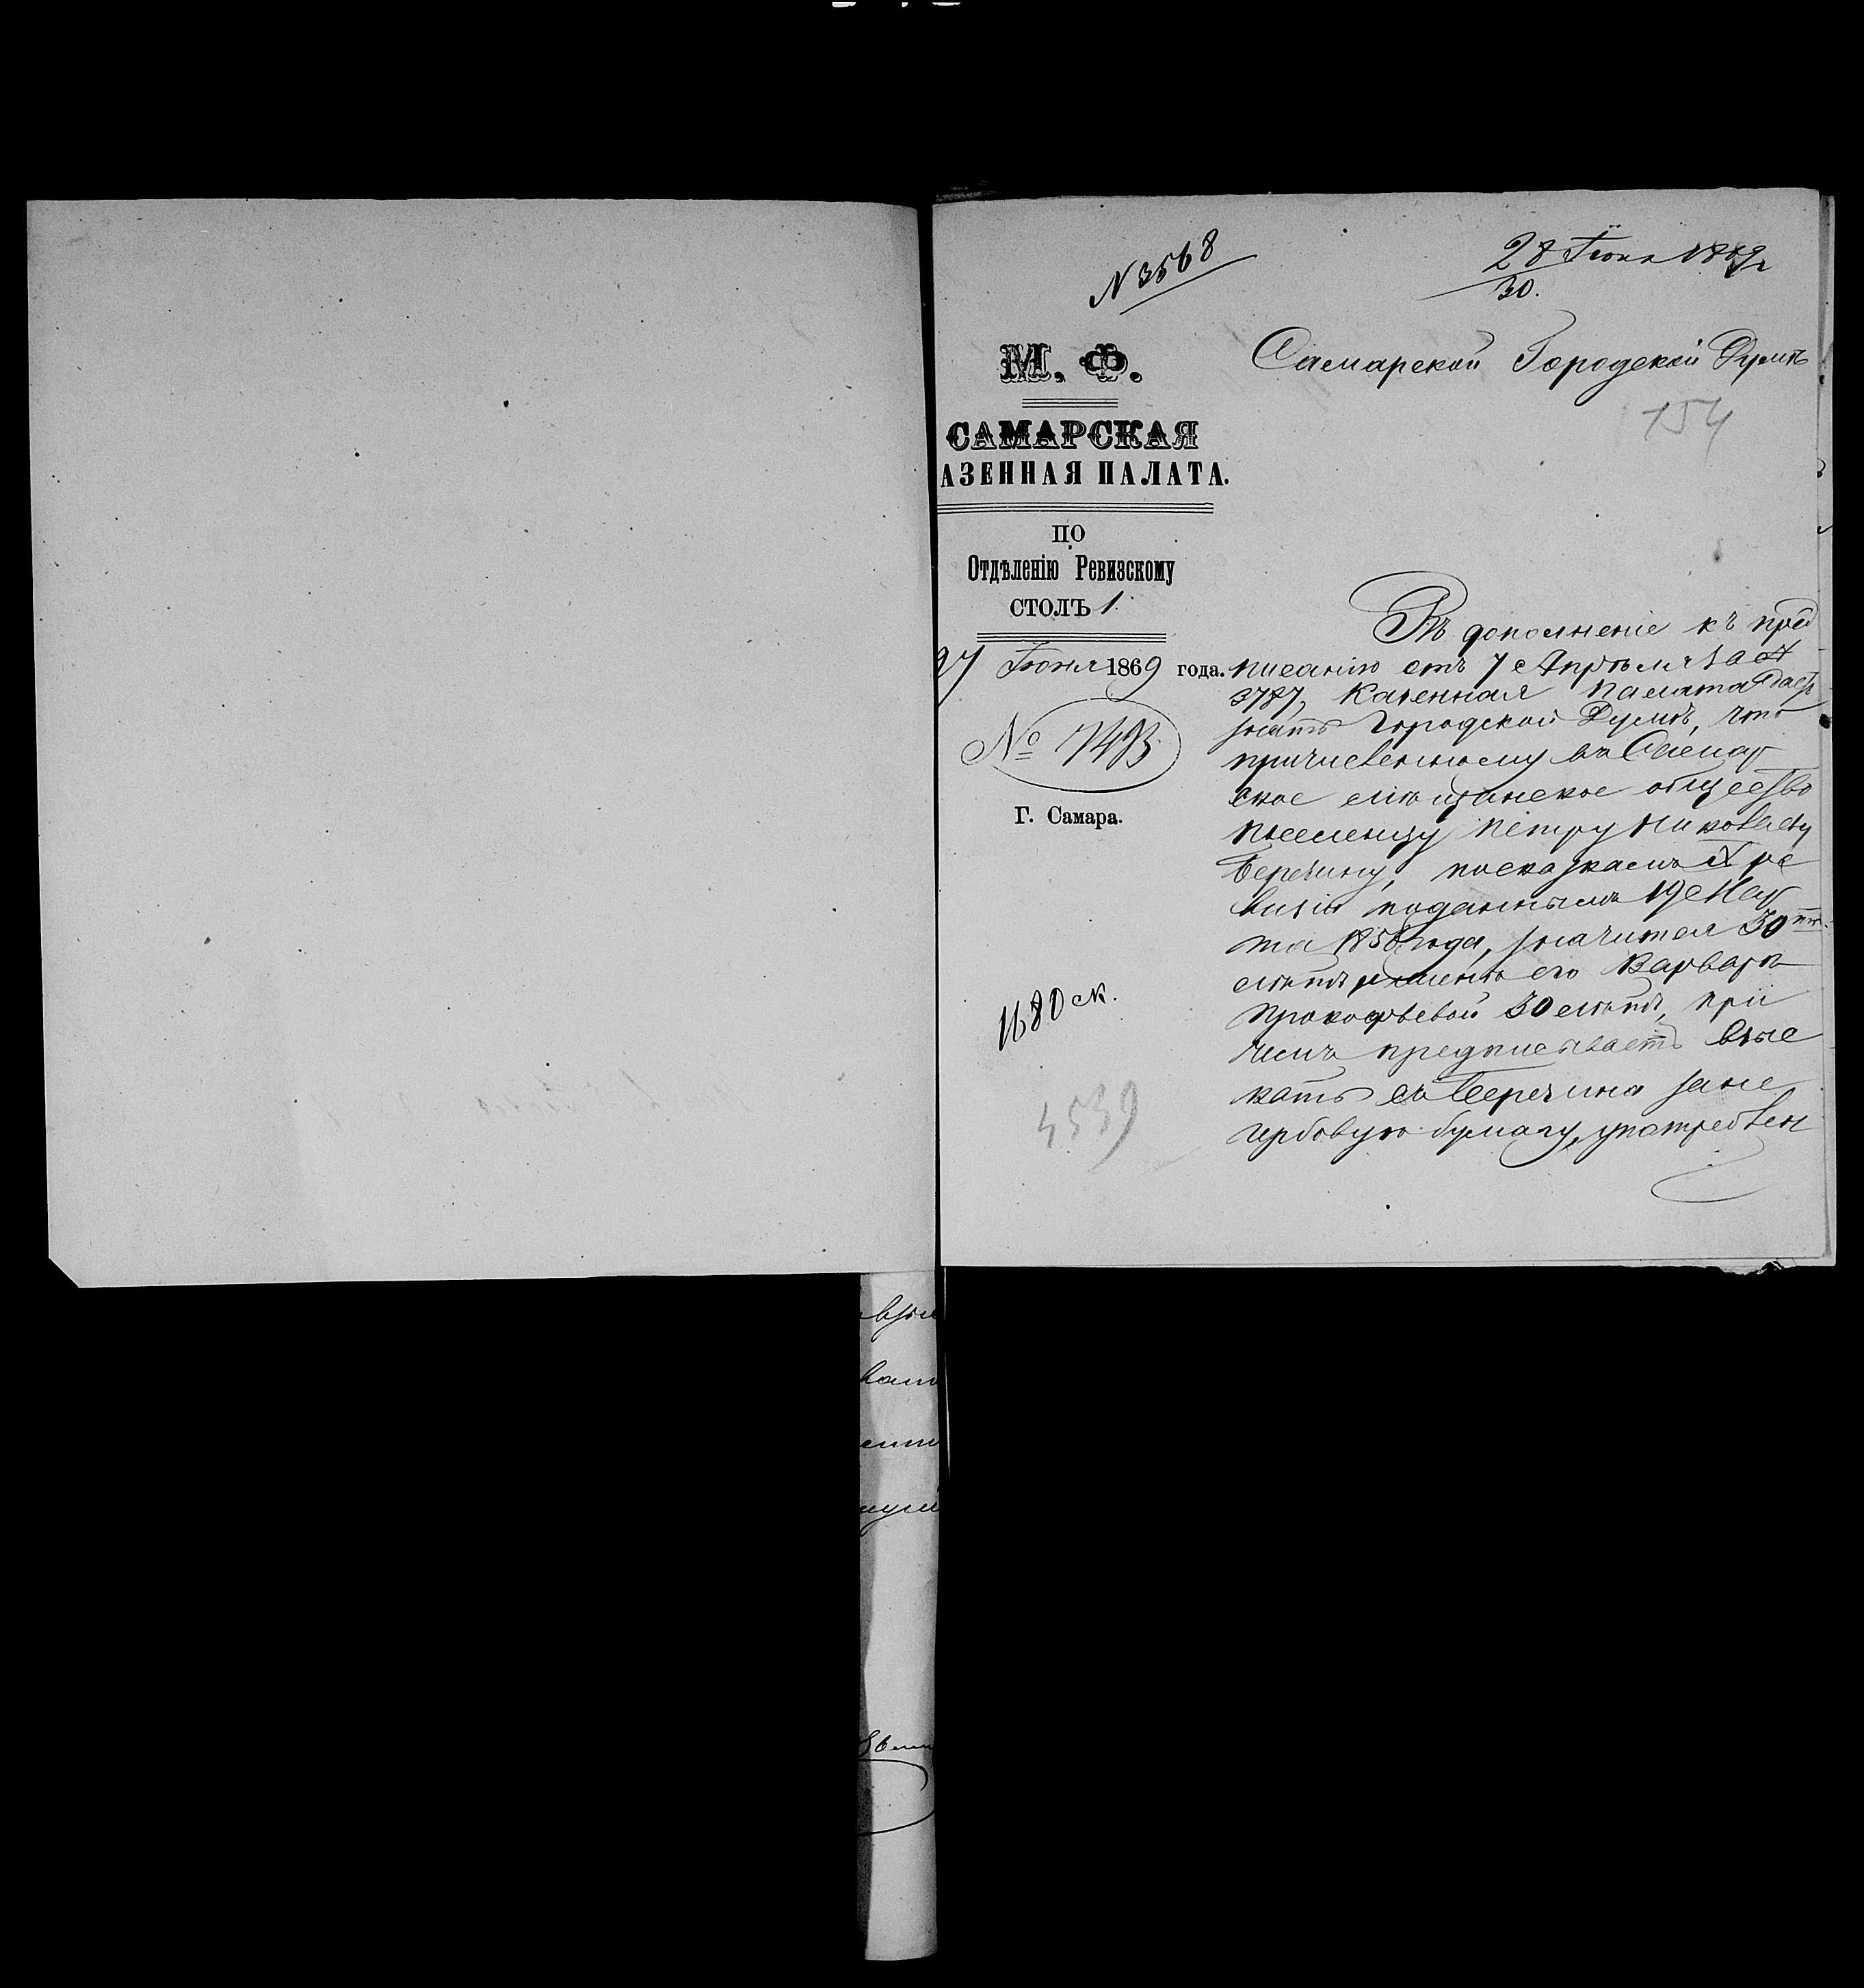 N 3568
28 Іюня 1869 г
30.
М. Ф.
САМАРСКАЯ
АЗЕННАЯ ПАЛАТА.
ПО
Отдѣленію Ревизскому
СТОЛЪ 1.
27 Іюня 1869 года.
№ 7493
Г. Самара.
1680 ск.
4539
Самарской Городской Думѣ
154
Въ дополненіе къ пред
писанію отъ 7 Апрѣля за №
3787, Казенная Палата даетъ
знать Городской Думѣ, что
причисленному въ Самар
ское мѣщанское общество
поселенцу Петру Николаеву
Беречину, по сказкамъ X ре
визіи поданнымъ 19 Мар
та 1858 года, значится 30
лѣтъ и женѣ его Варварѣ
Прокофьевой 30 лѣтъ, при
чемъ предписываетъ взыс
кать съ Беречина за не
гербовую бумагу, употреблен